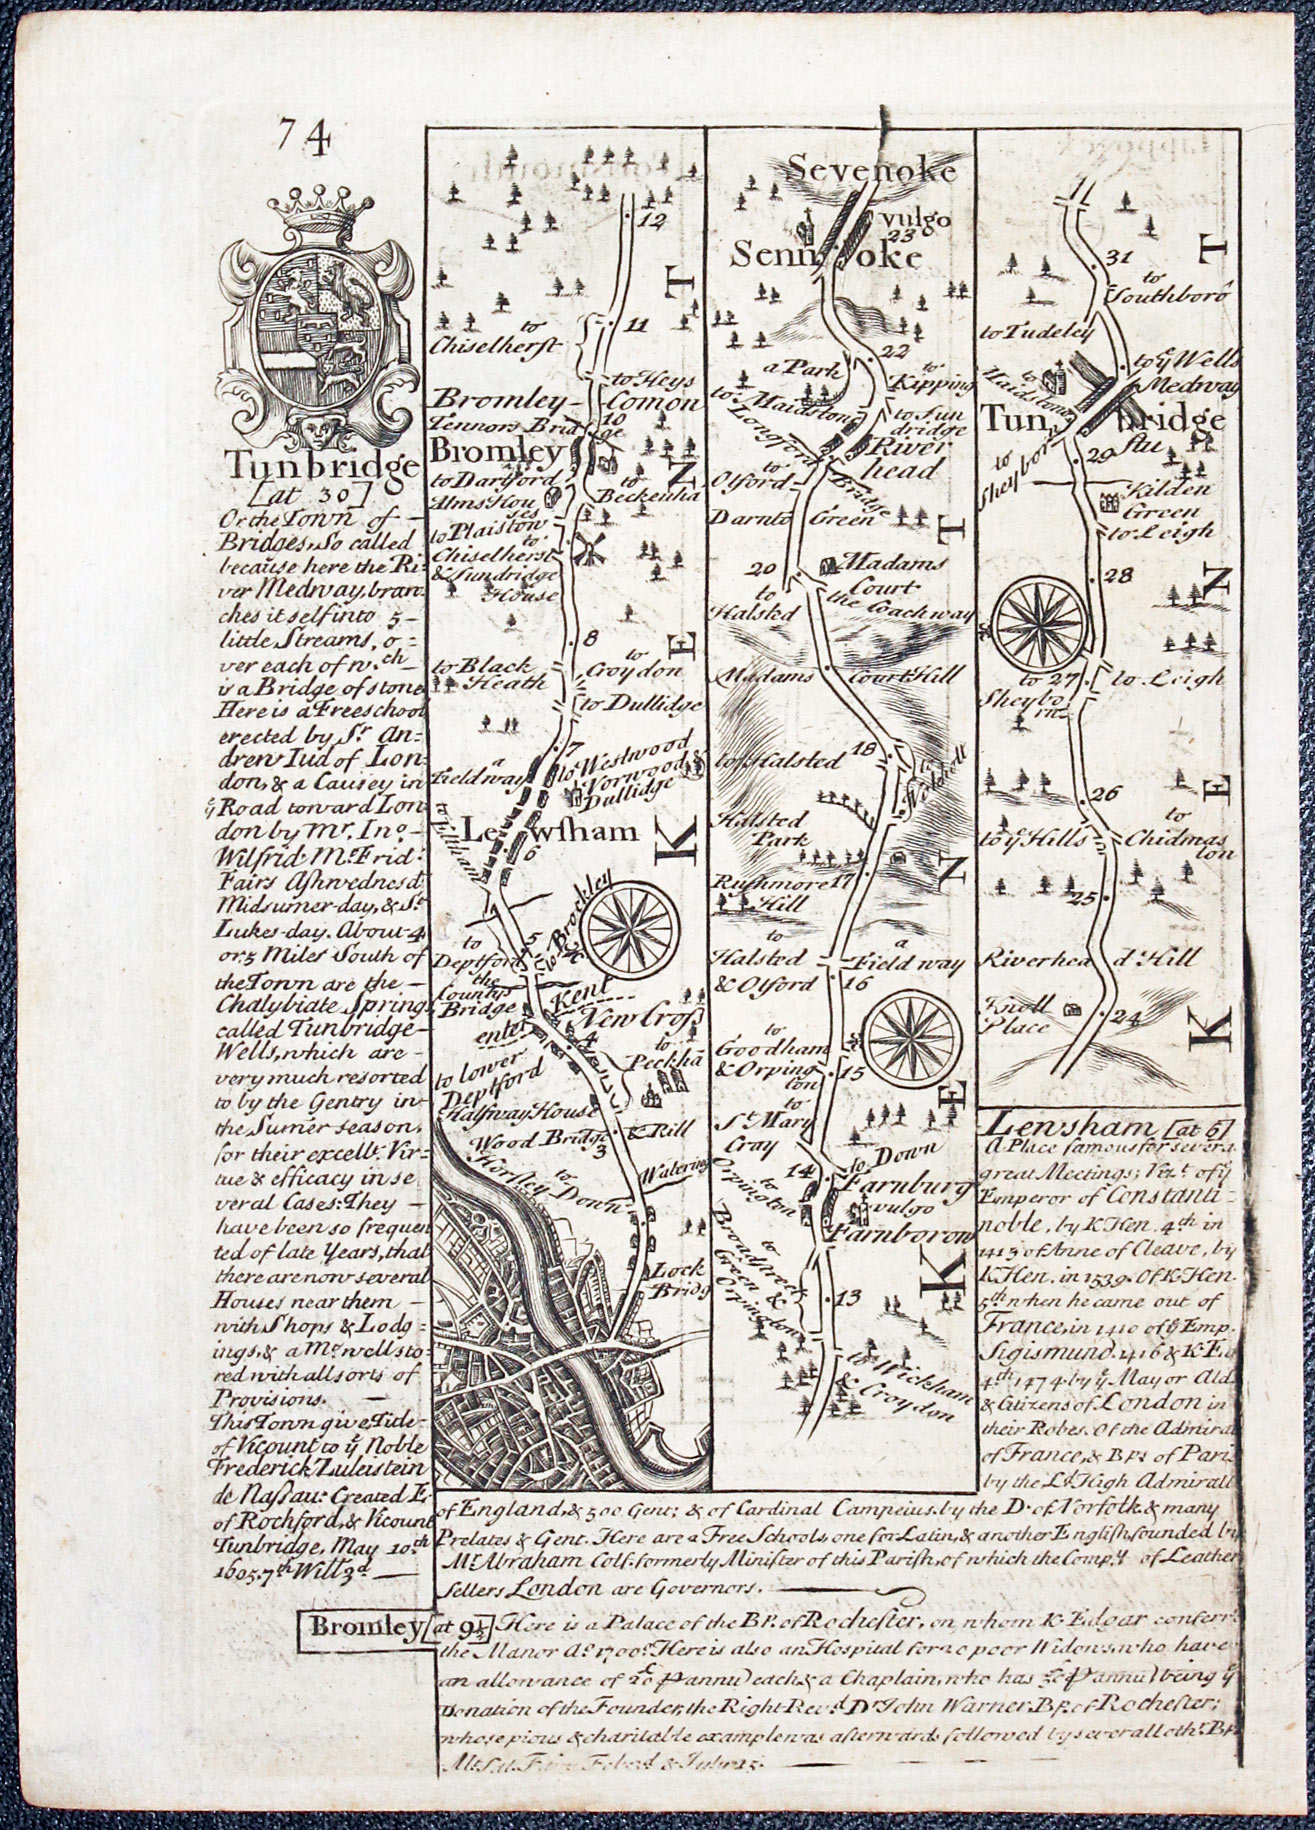 74
Tunbridge
[at 30]
Or the Town of
Bridges, So called
because here the Ri-
ver Medway, bran-
ches it self into 5
little Streams, o=
ver each of wch
is a Bridge of stone
Here is a Free school
erected by Sr. An=
drew Iud of Lon-
don, & a Causey in
ye Road toward Lon
don by Mr. Ino.
Wilfrid. Mt. Frid:
Fairs Ashwednesd:
Midsumer-day, & St
Lukes-day. About 4
or 5 Miles South of
the Town are the
Chalybiate Springs
called Tunbridge-
Wells, which are
very much resorted
to by the Gentry in
the Sumer season,
for their excellt. Vir=
tue & efficacy in se
veral Cases: They
have been so frequen
ted of late Years, that
there are now several
Houses near them
with Shops & Lodg=
ings, & a Mt. well sto=
red with all sorts of
Provisions.
This Town give Title
of Vicount to ye Noble
Frederick Zuleistein
de Nassau: Created E.
of Rochford, & Vicount
Tunbridge, May 10th
1695. 7th Will 3d
12
11
to
Chiselherst
to Heys
Comon
Bromley
Tennors Bridge
10
Bromley
to Dartford
to
Beckenha
Alms Hou
ses
to Plaistow
to
Chiselherst
& Sundridge
House
8
to Black
Heath
to
Croydon
to Dullidge
7
a
Field way
to Westwood
Norwood &
Dullidge
Lewsham
to Eltham
6
5
to Brockley
to
Deptford
the
County
Bridge
enter Kent
New Cross
4
to
Peckhã
to lower
Deptford
Halfway House
Wood Bridge & Rill
3
Horsley Down
to
Watering
Lock
Bridg
K E N T
Sevenoke
vulgo
23
Sennoke
22
a Park
to
Kipping
to Maidstone
to Sun
dridge
River
head
Longford
Bridge
to
Otford
Darnto Green
20
Madams
Court
to
Halsted
the Coachway
Madams Court Hill
to Halsted
18
to
Hillsted
Park
Rushmore
Hill
17
to
Halsted
& Otford
a
Field way
16
to
Goodham
& Orping
ton
15
to
St Mary
Cray
to Down
14
to
Orpington
Farnburg
vulgo
Farnborow
to
Broadstreet
Green &
Orpington
13
to Wickham
& Croydon
K E N T
31
to
Southboro
to Tudeley
to ye Wells
to
Maidstone
Medway
Tunbridge
flu
29
to
Sheyborn
Kilden
Green
to Leigh
28
to
Sheybo
rn
27
to Leigh
26
to ye Hills
to
Chidings
ton
25
Riverhead Hill
Knoll
Place
24
K E N T
Lewsham [at 6]
A Place famous for severa
great Meetings; Vizt. of ye
Emperor of Constanti=
noble, by K Hen. 4th in
1413 of Anne of Cleave, by
K Hen. in 1539. Of K Hen.
5th when he came out of
France, in 1410 of ye Emp.
Sigismund. 1416 & K. Ed
4th, 1474. by ye Mayor Ald.
& Citizens of London in
their Robes. Of the Admiral
of France, & Bps of Paris
by the Ld High Admirall
of England, & 500 Gent: & of Cardinal Campeius. by the D. of Norfolk & many
Prelates & Gent. Here are 2 Free Schools, one for Latin, & another English, founded by
Mr. Abraham Colf. formerly Minister of this Parish, of which the Compy. of Leather
sellers London are Governors.
Bromley [at 9½] Here is a Palace of the Bp. of Rochester, on whom K. Edgar conferr'd
the Manor Ao. 1700. Here is also an Hospital for 20 poor Widows, who have
an allowance of 20£ P annũ each, & a Chaplain, who has 50£ P annũ being ye
Donation of the Founder, the Right Revd. Dr. John Warner Bp. of Rochester;
whose pious & charitable example was afterwards followed by several othr. Bps
Mt. Sat. Fairs Feb. 3d & July 25.